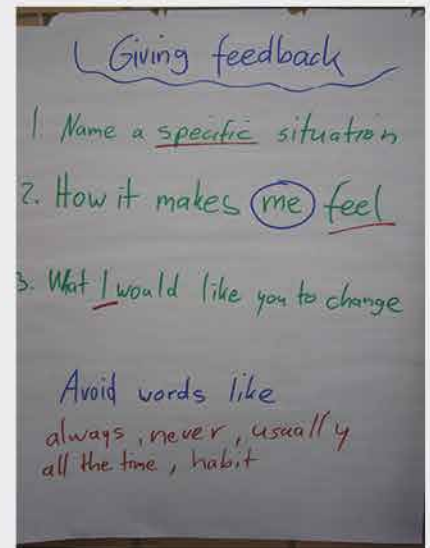 Giving feedback
1. Name a specific situation
2. How it makes me feel
3. What I would like you to change
Avoid words like
always, never, usually
all the time, habit